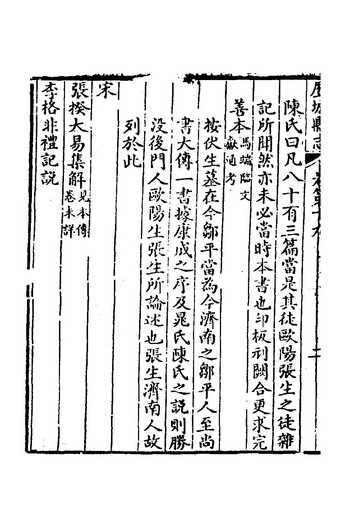 陳氏曰凡八十有三篇當是其徒歐陽張生之徒雜
記所聞然亦未必當時本書也印板刓闕合更求完
善本馬端臨文獻通考
按伏生墓在今鄒平當為今濟南之鄒平人至尚
書大傳一書據康成之序及晁氏陳氏之說則勝
没後門人歐陽生張生所論述也張生濟南人故
列於此
宋
張揆大易集解見本傳卷未詳
李格非禮記說